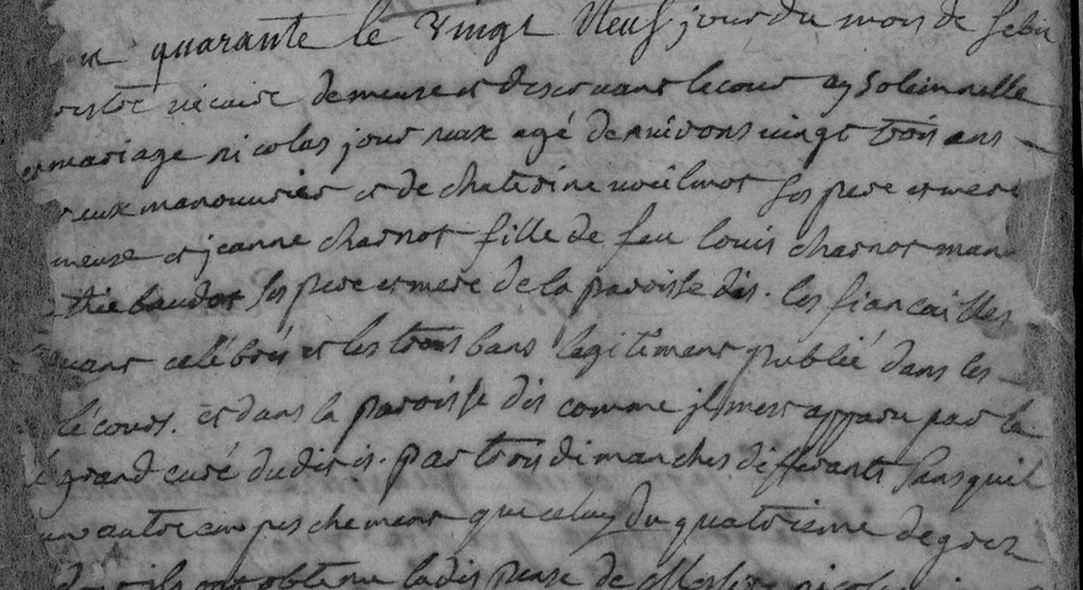 quarante le vingt Neuf jour du mois de febu
vicaire demeure et deservant lecour ay Solemnelle
mariage nicolas jour agé denvirons vingt trois ans
manouvrier et de chaterine ses pere et mere
meuse et jeanne charnot fille de feu louis charnot man
thiebaudot ses pere et mere de la paroisse dis. les fiancailles
celébrés et les trois bans legitimement publié dans les
lécourt. et dans la paroisse dis comme il mest apparu par la
grand curé dudit is. par trois dimanches differants sans quil
autre empeschement que celuy du quatrieme degrez
ils ont obtenu la dispense de Messire nicolas